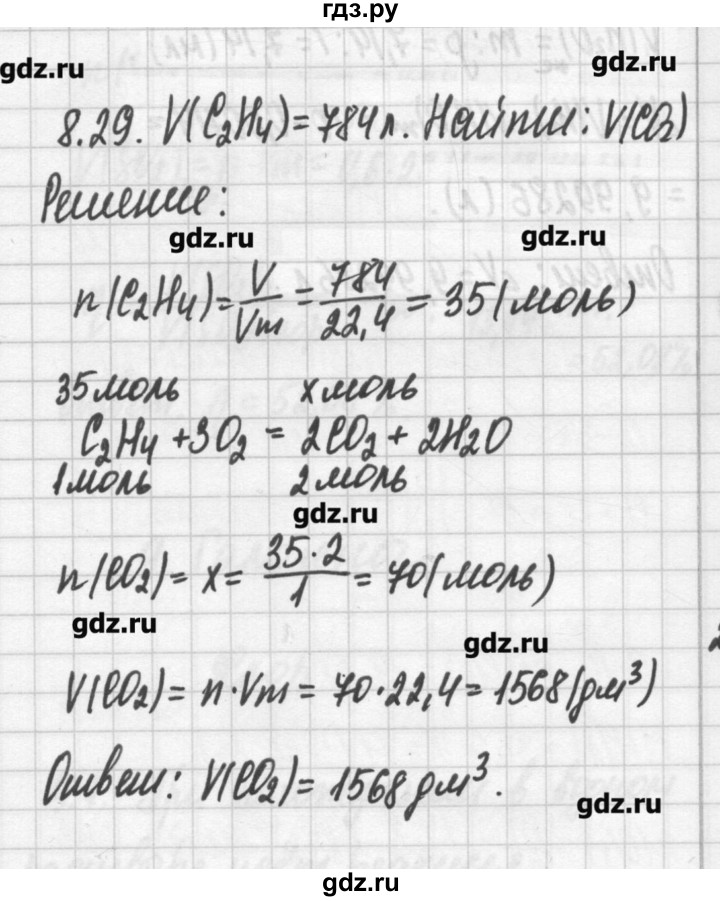 гдз.ру
gdz.ru
gdz.ru
8.29. V(C₂H₄)=784л. Найти: V(CO₂)
Решение:
gdz.ru
gdz.ru
n(C₂H₄)=V/Vm=784/22,4=35(моль)
35моль x моль
C₂H₄+3O₂=2CO₂+2H₂O
1моль 2моль
gdz.ru
n(CO₂)=x=35·2/1=70(моль)
gdz.ru
gdz.ru
V(CO₂)=n·Vm=70·22,4=1568(дм³)
Ответ: V(CO₂)=1568дм³.
gdz.ru
gdz.ru